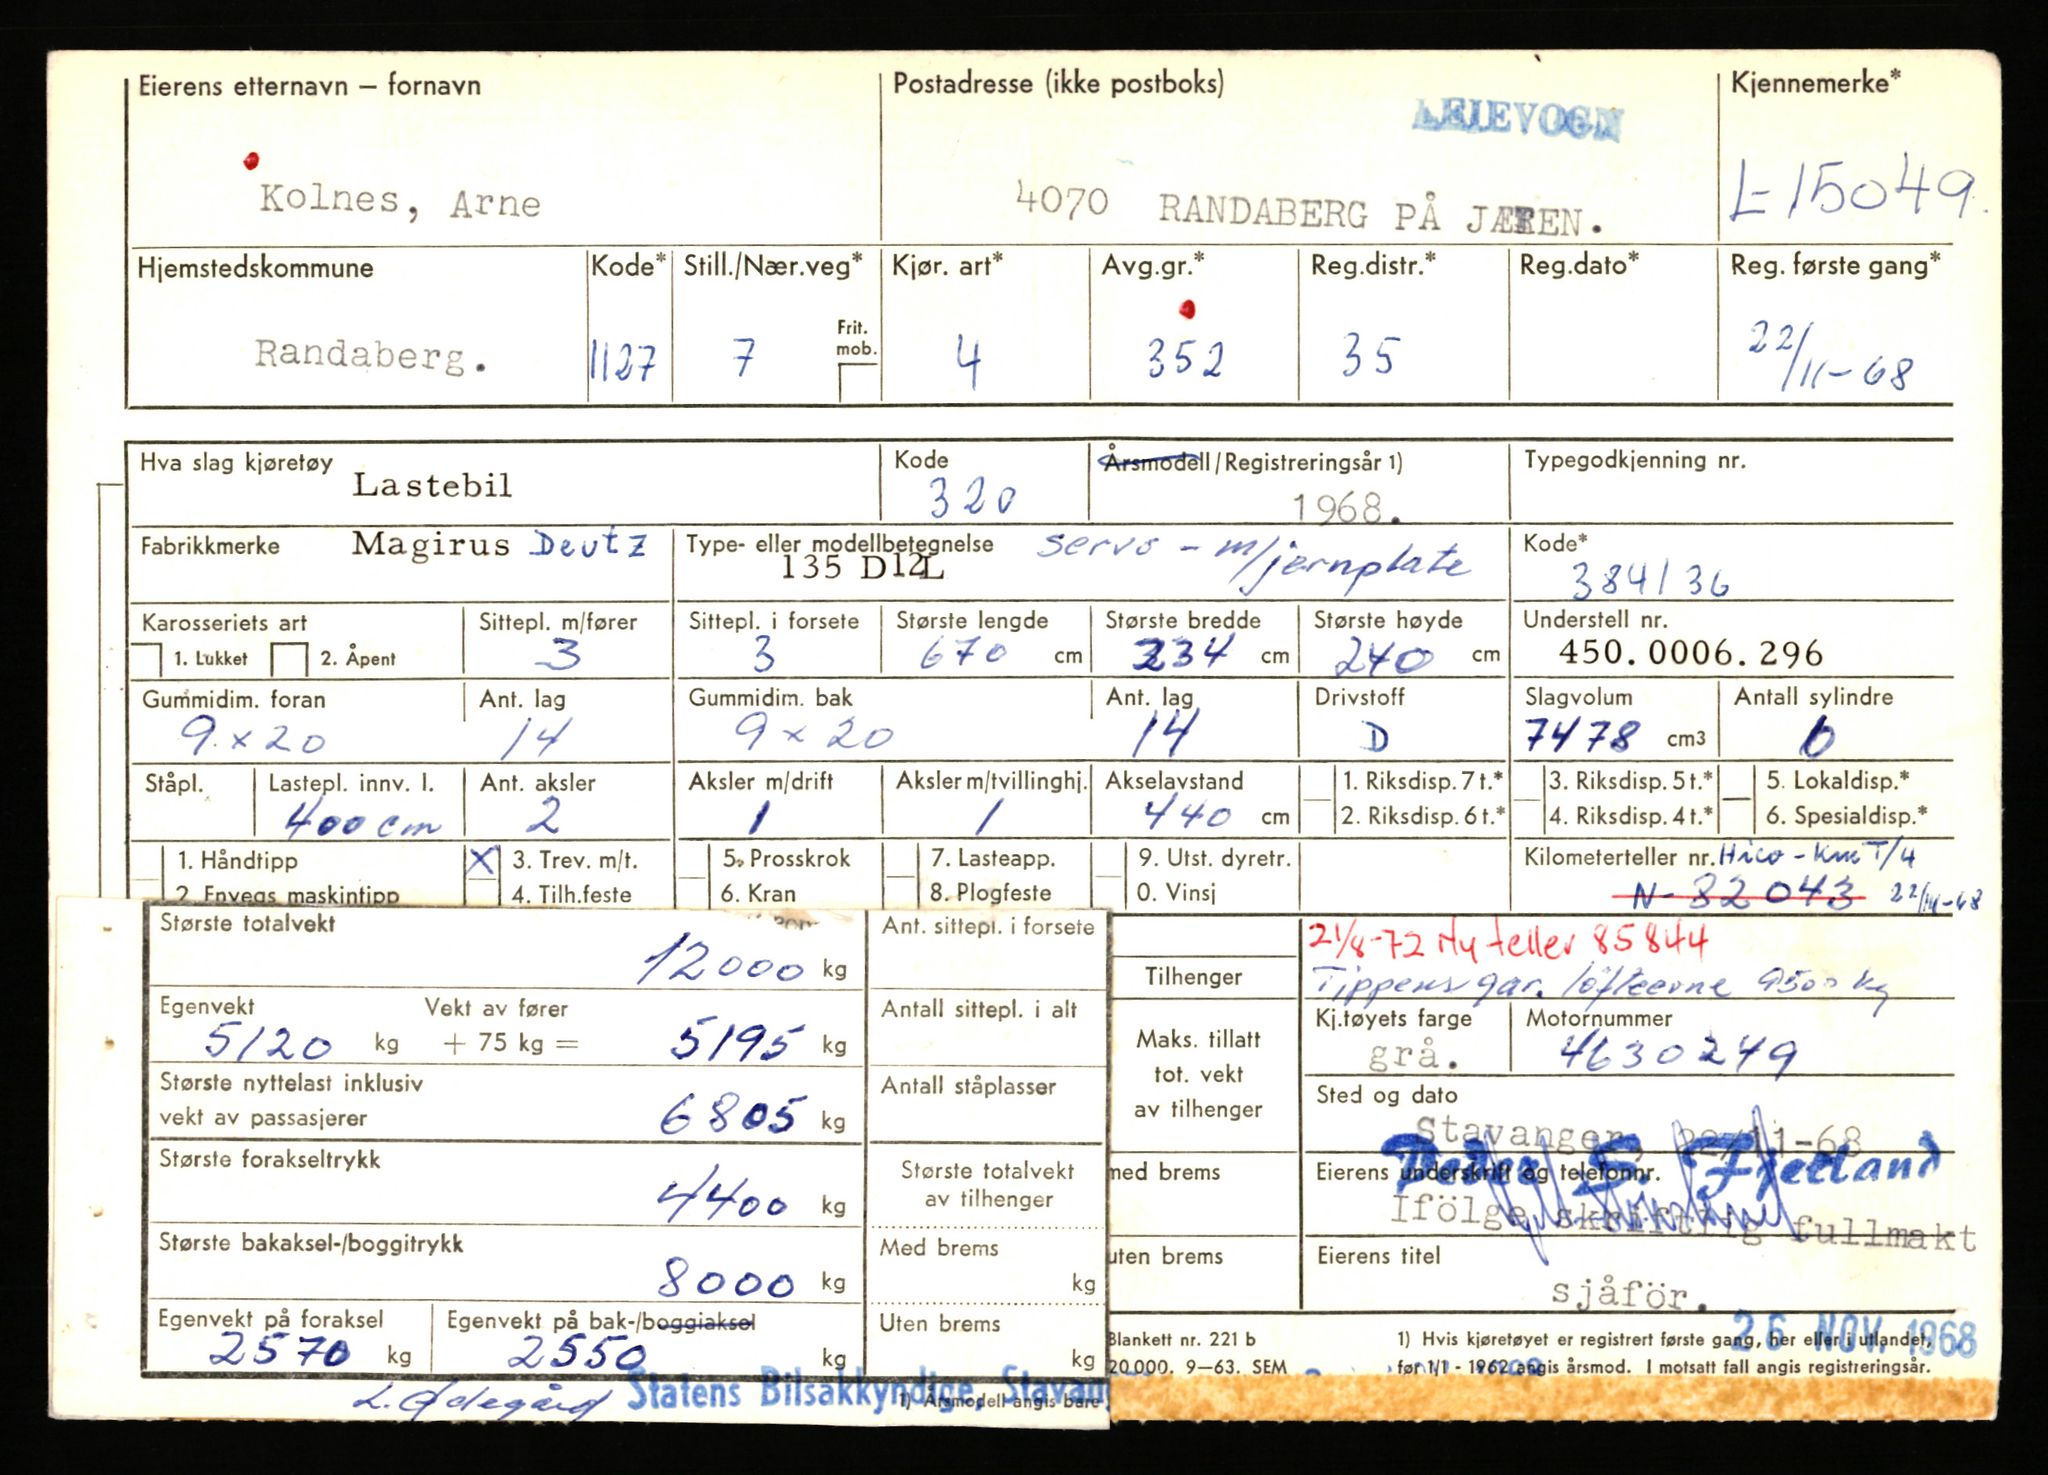 Eierens etternavn – fornavn
Postadresse (ikke postboks)
LEIEVOGN
Kjennemerke*
Kolnes, Arne
4070 RANDABERG PÅ JÆREN.
L-15049.
Hjemstedskommune
Kode*
Still./Nær.veg*
Kjør. art*
Avg.gr.*
Reg.distr.*
Reg.dato*
Reg. første gang*
Randaberg.
1127
7
Frit. mob.
4
352
35
22/11-68
Hva slag kjøretøy
Lastebil
Kode
320
Årsmodell/Registreringsår 1)
1968.
Typegodkjenning nr.
Fabrikkmerke
Magirus Deutz
Type- eller modellbetegnelse
servo - m/jernplate
135 D12L
Kode*
384136
Karosseriets art
1. Lukket
2. Åpent
Sittepl. m/fører
3
Sittepl. i forsete
3
Største lengde
670 cm
Største bredde
234 cm
Største høyde
240 cm
Understell nr.
450.0006.296
Gummidim. foran
9 x 20
Ant. lag
14
Gummidim. bak
9 x 20
Ant. lag
14
Drivstoff
D
Slagvolum
7478 cm3
Antall sylindre
6
Ståpl.
Lastepl. innv. l.
400 cm
Ant. aksler
2
Aksler m/drift
1
Aksler m/tvillinghj.
1
Akselavstand
440 cm
1. Riksdisp. 7 t.*
2. Riksdisp. 6 t.*
3. Riksdisp. 5 t.*
4. Riksdisp. 4 t.*
5. Lokaldisp.*
6. Spesialdisp.*
1. Håndtipp
2. Envegs maskintipp
X
3. Trev. m/t.
4. Tilh.feste
5. Prosskrok
6. Kran
7. Lasteapp.
8. Plogfeste
9. Utst. dyretr.
0. Vinsj
Kilometerteller nr. Hico - Km T/4
N-82043 22/11-68
Største totalvekt
12000 kg
Ant. sittepl. i forsete
Tilhenger
21/8-72 Ny teller 85844
Tippens gar. löfteevne 9500 kg
Egenvekt
5120 kg
Vekt av fører
+ 75 kg = 5195 kg
Antall sittepl. i alt
Maks. tillatt
tot. vekt
av tilhenger
Kj.tøyets farge
grå.
Motornummer
4630249
Største nyttelast inklusiv
vekt av passasjerer
6805 kg
Antall ståplasser
Sted og dato
Stavanger, 22/11-68
Største forakseltrykk
4400 kg
Største totalvekt
av tilhenger
med brems
Eierens underskrift og telefonnr.
Peder S. Fjelland
Ifölge skriftlig fullmakt
Største bakaksel-/boggitrykk
8000 kg
Med brems
kg
uten brems
Eierens titel
sjåför.
Egenvekt på foraksel
2570 kg
Egenvekt på bak-/boggiaksel
2550 kg
Uten brems
kg
Blankett nr. 221 b
20 000. 9–63. SEM
26 NOV. 1968
1) Hvis kjøretøyet er registrert første gang, her eller i utlandet,
før 1/1 - 1962 angis årsmod. I motsatt fall angis registreringsår.
L. Ødegård
Statens Bilsakkyndige, Stavan
1) Årsmodell angis bare